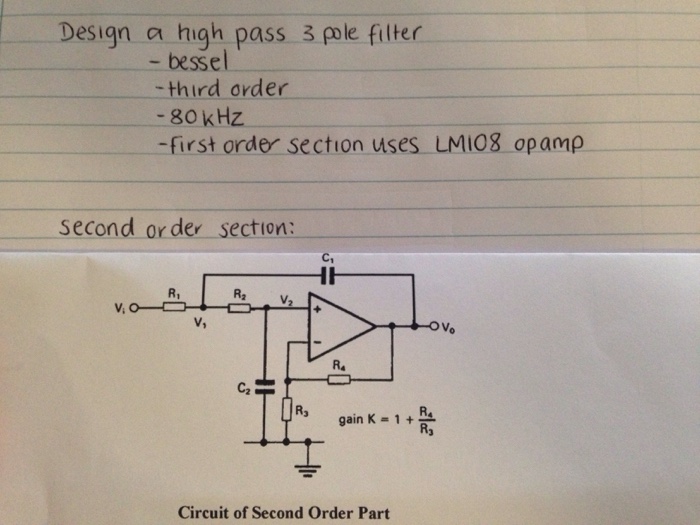 Design a high pass 3 pole filter
- bessel
- third order
- 80kHz
- first order section uses LM108 opamp
second order section:
C₁
R₁
R₂
V₂
+
Vᵢ
V₁
Vₒ
−
R₄
C₂
R₃
gain K = 1 + R₄/R₃
Circuit of Second Order Part